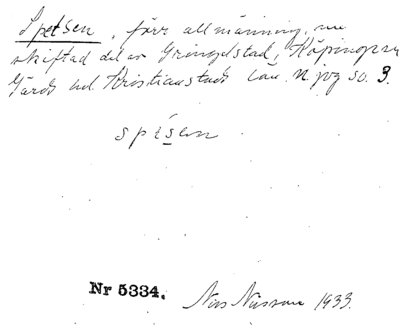 Spetsen, förr allmänning, nu
skiftad del av Gringelstad, Köpinge sn
Gärds hd. Kristianstads län. N jvg so. 3.
spesen
Nr 5334. Nils Nilsson 1933.